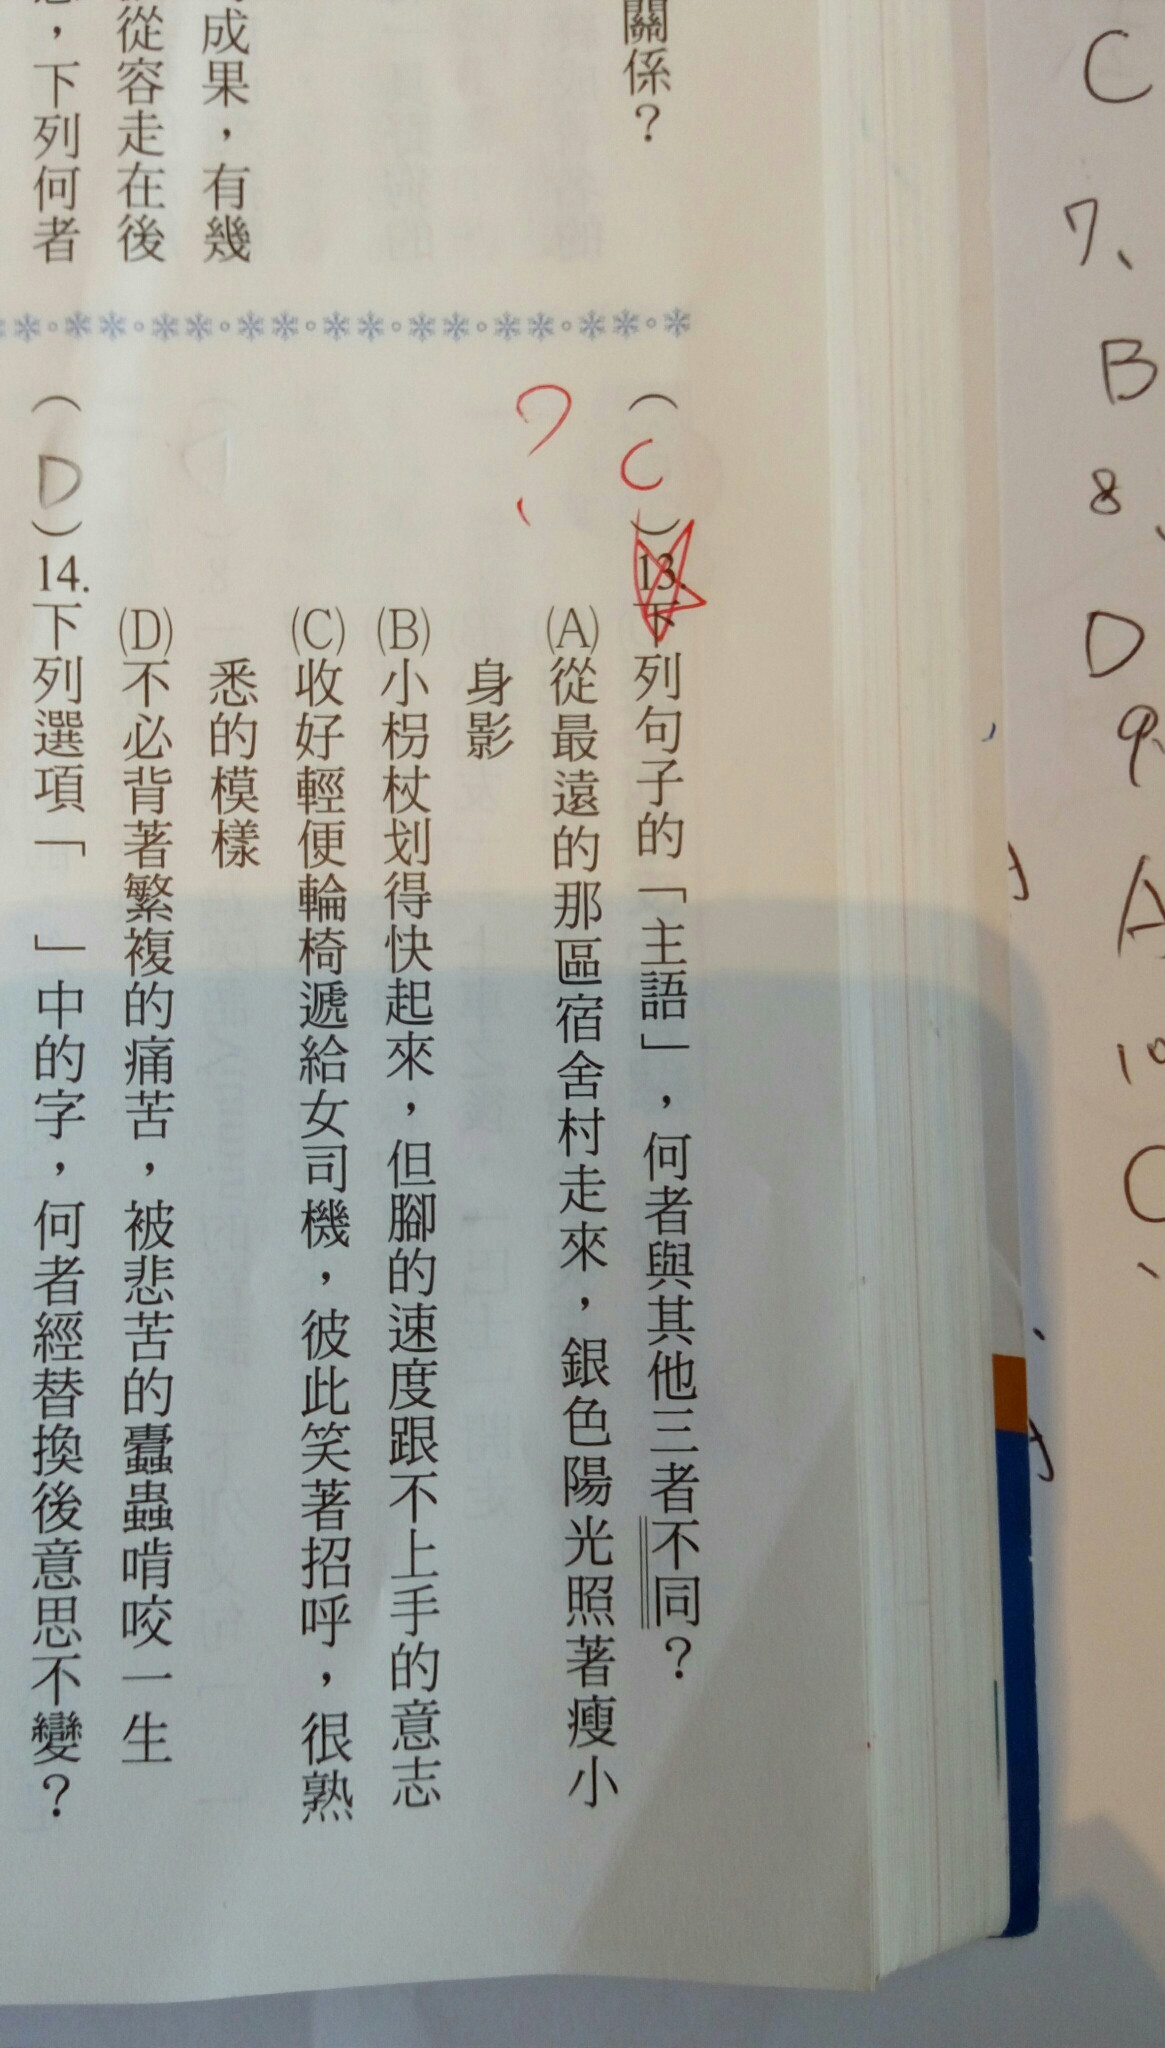 關係?
成果,有幾
從容走在後
,下列何者
(C)13.下列句子的「主語」,何者與其他三者不同?
?
(A)從最遠的那區宿舍村走來,銀色陽光照著瘦小
身影
(B)小柺杖划得快起來,但腳的速度跟不上手的意志
(C)收好輕便輪椅遞給女司機,彼此笑著招呼,很熟
悉的模樣
(D)不必背著繁複的痛苦,被悲苦的蠹蟲啃咬一生
(D)14.下列選項「 」中的字,何者經替換後意思不變?
C
7、
B
8、
D
9、
A
10
C、